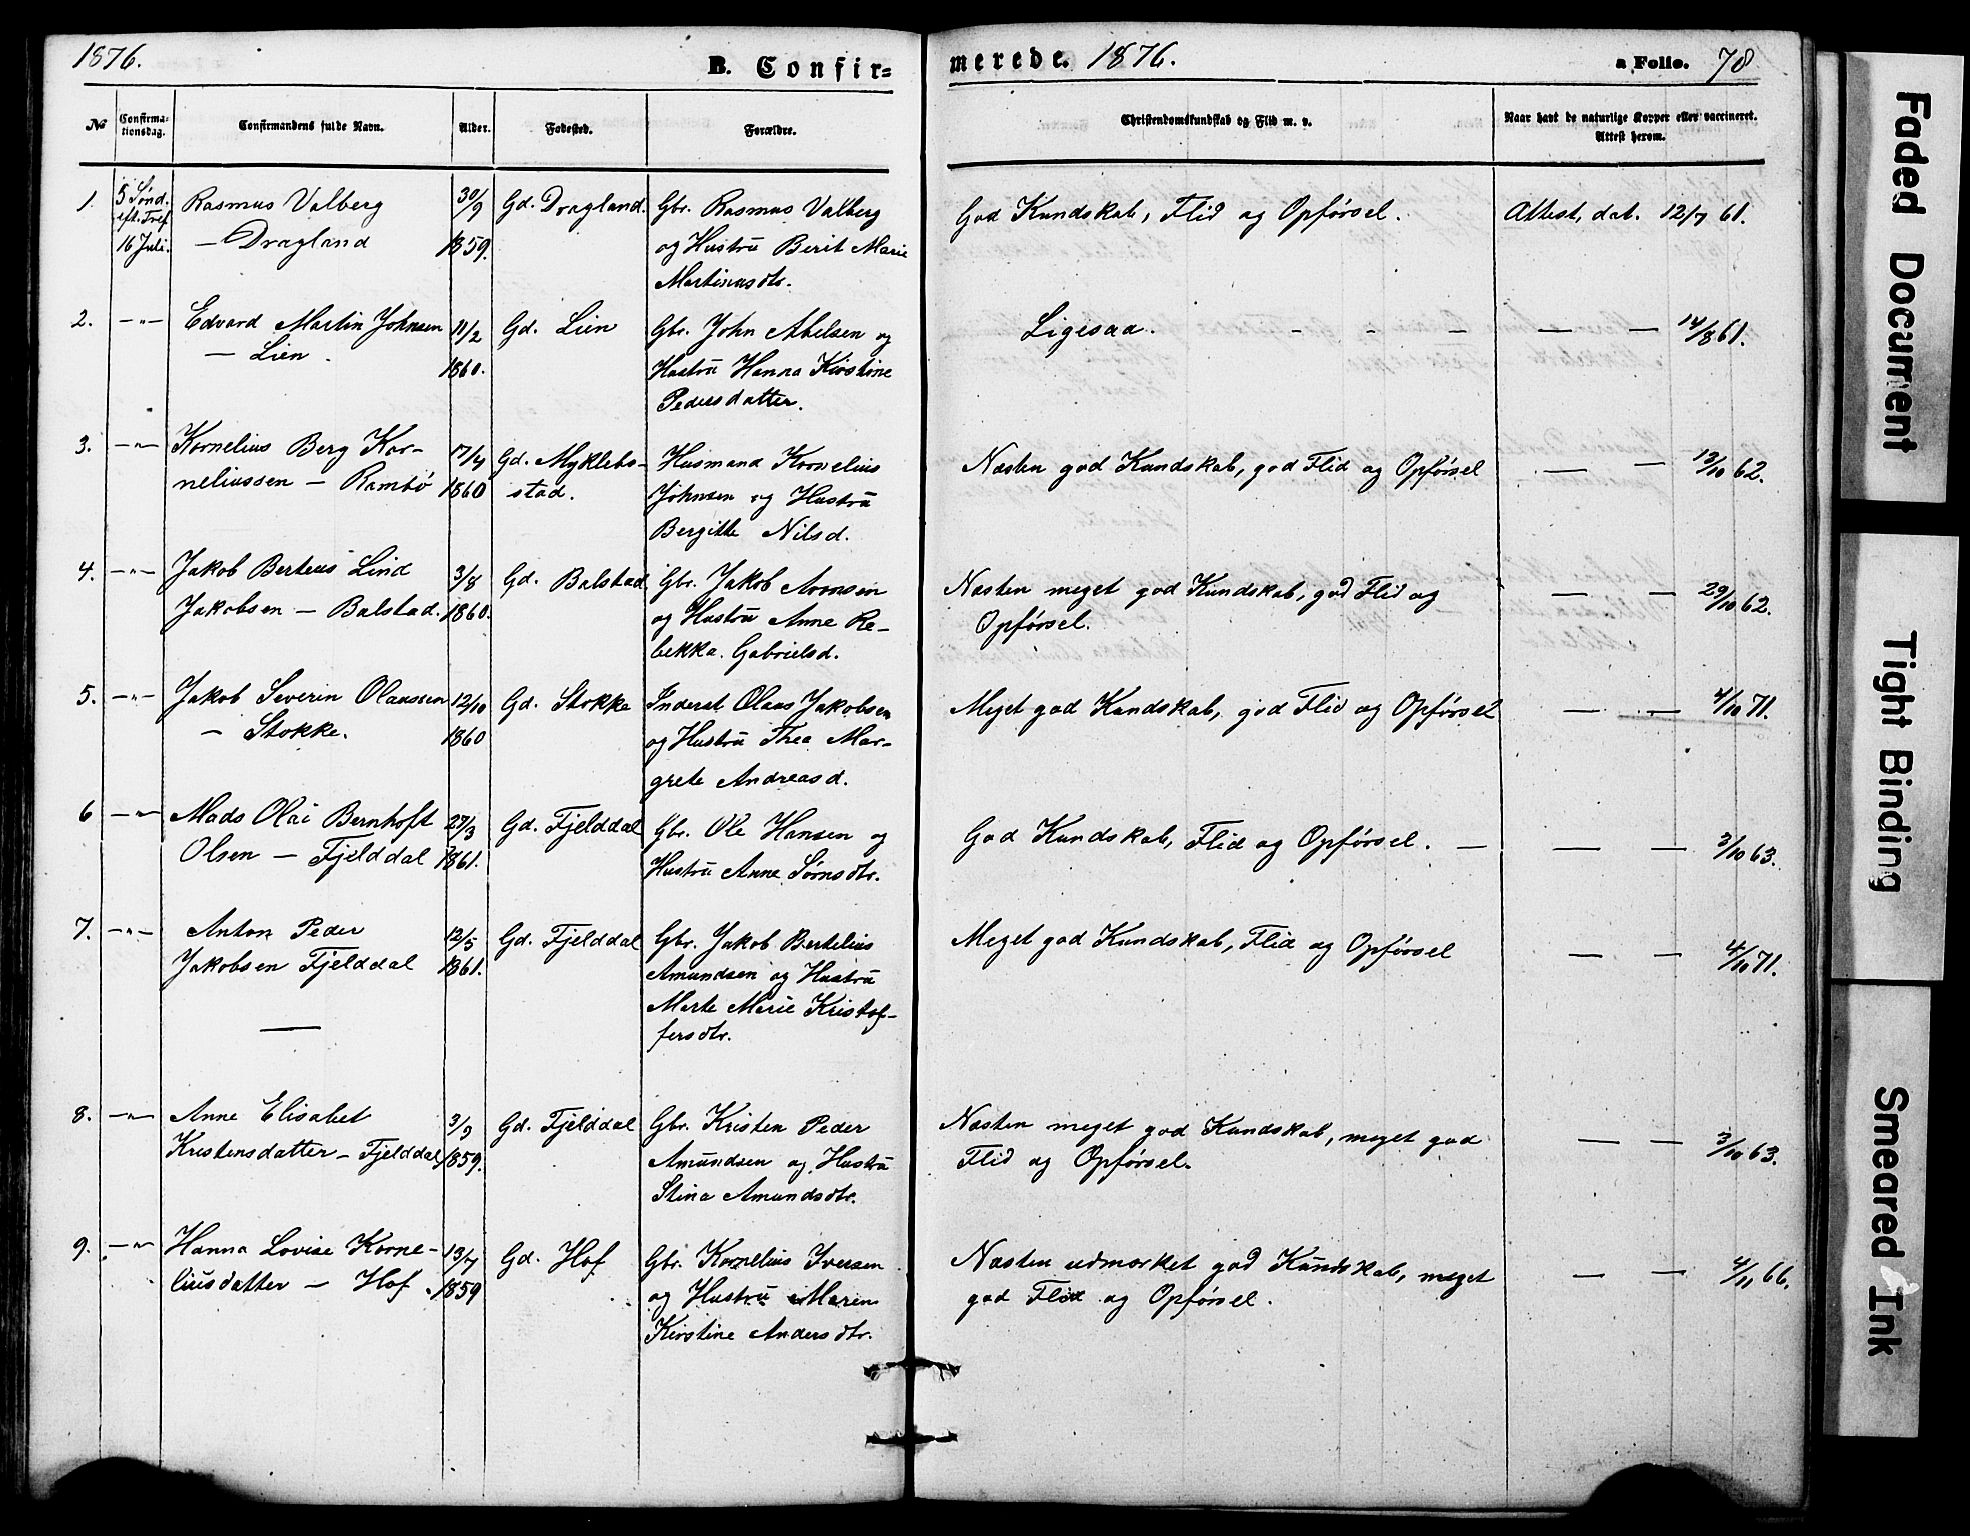 1876.
B. Confir-
merede. 1876.
a Folio. 78
№
Confirma-
tionsdag.
Confirmandens fulde Navn.
Alder.
Fødested.
Forældre.
Christendomskundskab og Flid m. v.
Naar havt de naturlige Kopper eller vaccineret.
Attest herom.
1. 5 Sønd. Rasmus Valberg 30/9 Gd. Dragland. Gbr. Rasmus Valberg God Kundskab, Flid og Opførsel. Attest, dat. 12/7 61.
eft. Tref.
16 Juli. — Dragland 1859. og Hustru Berit Marie
Martinusdtr.
2. —"— Edvard Martin Johnsen 11/2 Gd. Lien Gbr. John Abelsen og Ligesaa. - - - - — — 14/8 61.
— Lien. 1860. Hustru Hanna Kirstine
Pedersdatter.
3. —"— Kornelius Berg Kor- 17/4 Gd. Myklebo- Husmand Kornelius Næsten god Kundskab, god Flid og Opførsel — — 13/10 62.
neliussen — Rambø 1860 stad. Johnsen og Hustru
Bergitte Nilsd.
4. —"— Jakob Berteus Lind 3/8 Gd. Balstad Gbr. Jakob Aronsen Næsten meget god Kundskab, god Flid og — — 29/10 62.
Jakobsen — Balstad. 1860. og Hustru Anne Re- Opførsel.
bekka Gabrielsd.
5. —"— Jakob Severin Olaussen 12/10 Gd. Stokke Inderst Olaus Jakobsen Meget god Kundskab, god Flid og Opførsel — — 4/10 71.
— Stokke. 1860 og Hustru Thea Mar-
grete Andreasd.
6 —"— Mads Olai Bernhoft 27/3 Gd. Fjelddal Gbr. Ole Hansen og God Kundskab, Flid og Opførsel. — — — 3/10 63.
Olsen — Fjelddal 1861. Hustru Anne Sørnsdtr.
7. —"— Anton Peder 12/5 Gd. Fjelddal Gbr. Jakob Bertelius Meget god Kundskab, Flid og Opførsel — — 4/10 71.
Jakobsen Fjelddal 1861. Amundsen og Hustru
Marte Marie Kristof-
fersdtr.
8. —"— Anne Elisabet 3/9 Gd. Fjelddal Gbr. Kristen Peder Næsten meget god Kundskab, meget god — — 3/10 63.
Kristensdatter — Fjelddal 1859. Amundsen og Hustru Flid og Opførsel.
Stina Amundsdtr.
9. —"— Hanna Lovise Korne- 13/7 Gd. Hof Gbr. Kornelius Iversen Næsten udmærket god Kundskab, meget — — 4/11 66.
liusdatter — Hof. 1859 og Hustru Maren god Flid og Opførsel.
Kirstine Andersdtr.
Faded Document
Tight Binding
Smeared Ink